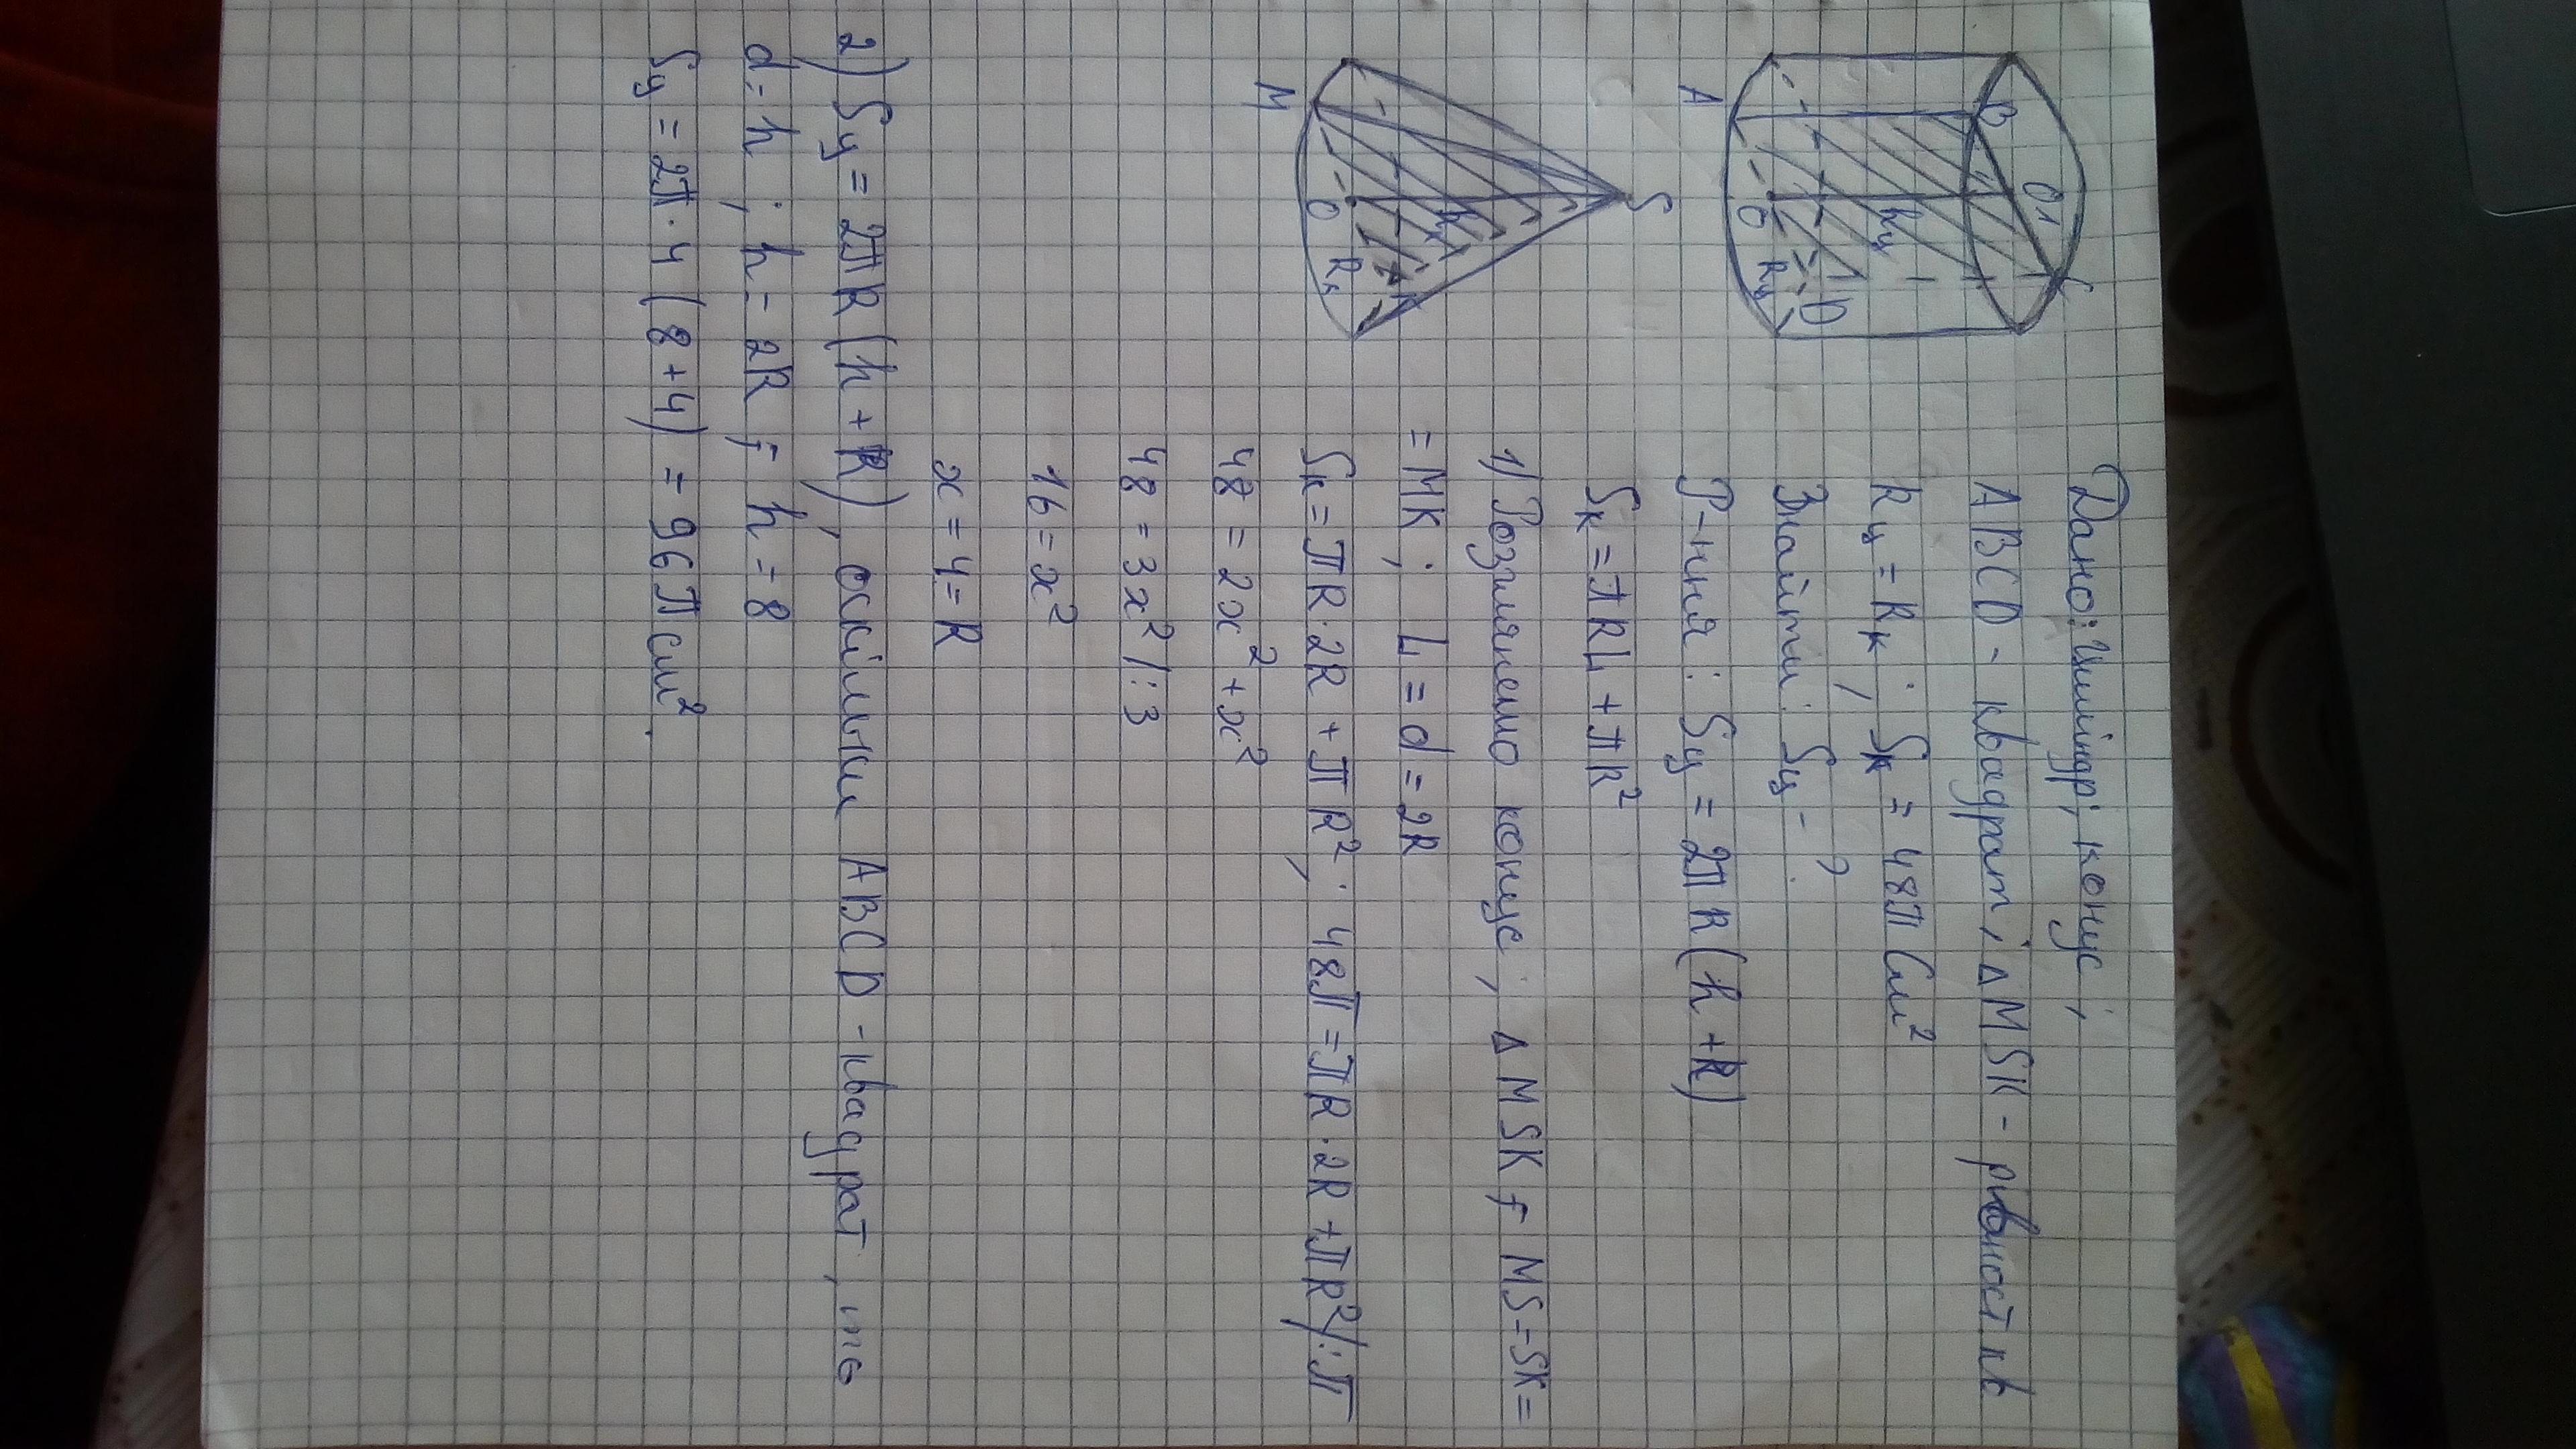 Дано: Циліндр; конус;
ABCD - квадрат; △MSK - рівност. к
Rц = Rк; Sк = 48π см²
Знайти: Sц - ?
Р-ння: Sц = 2πR(h+R)
Sк = πRL + πR²
1) Розглянемо конус; △MSK; MS=SK=
=MK; L=d=2R
Sк = πR·2R + πR²; 48π = πR·2R + πR² /:π
48 = 2x² + x²
48 = 3x² /:3
16 = x²
x = 4 = R
2) Sц = 2πR(h+R), оскільки ABCD - квадрат, то
d = h; h = 2R; h = 8
Sц = 2π·4(8+4) = 96π см².
B
O1
C
A
O
hц
Rц
D
S
M
O
hк
Rк
K